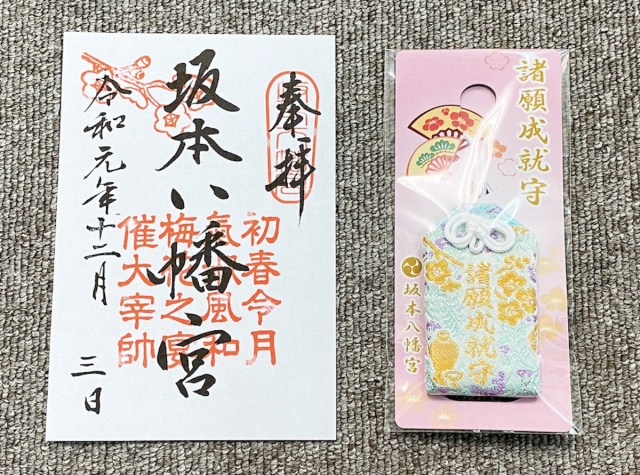 奉拝
坂本八幡宮
初春令月
氣淑風和
梅花之宴
催大宰帥
令和元年十二月
三日
諸願成就守
坂本八幡宮
諸願成就守